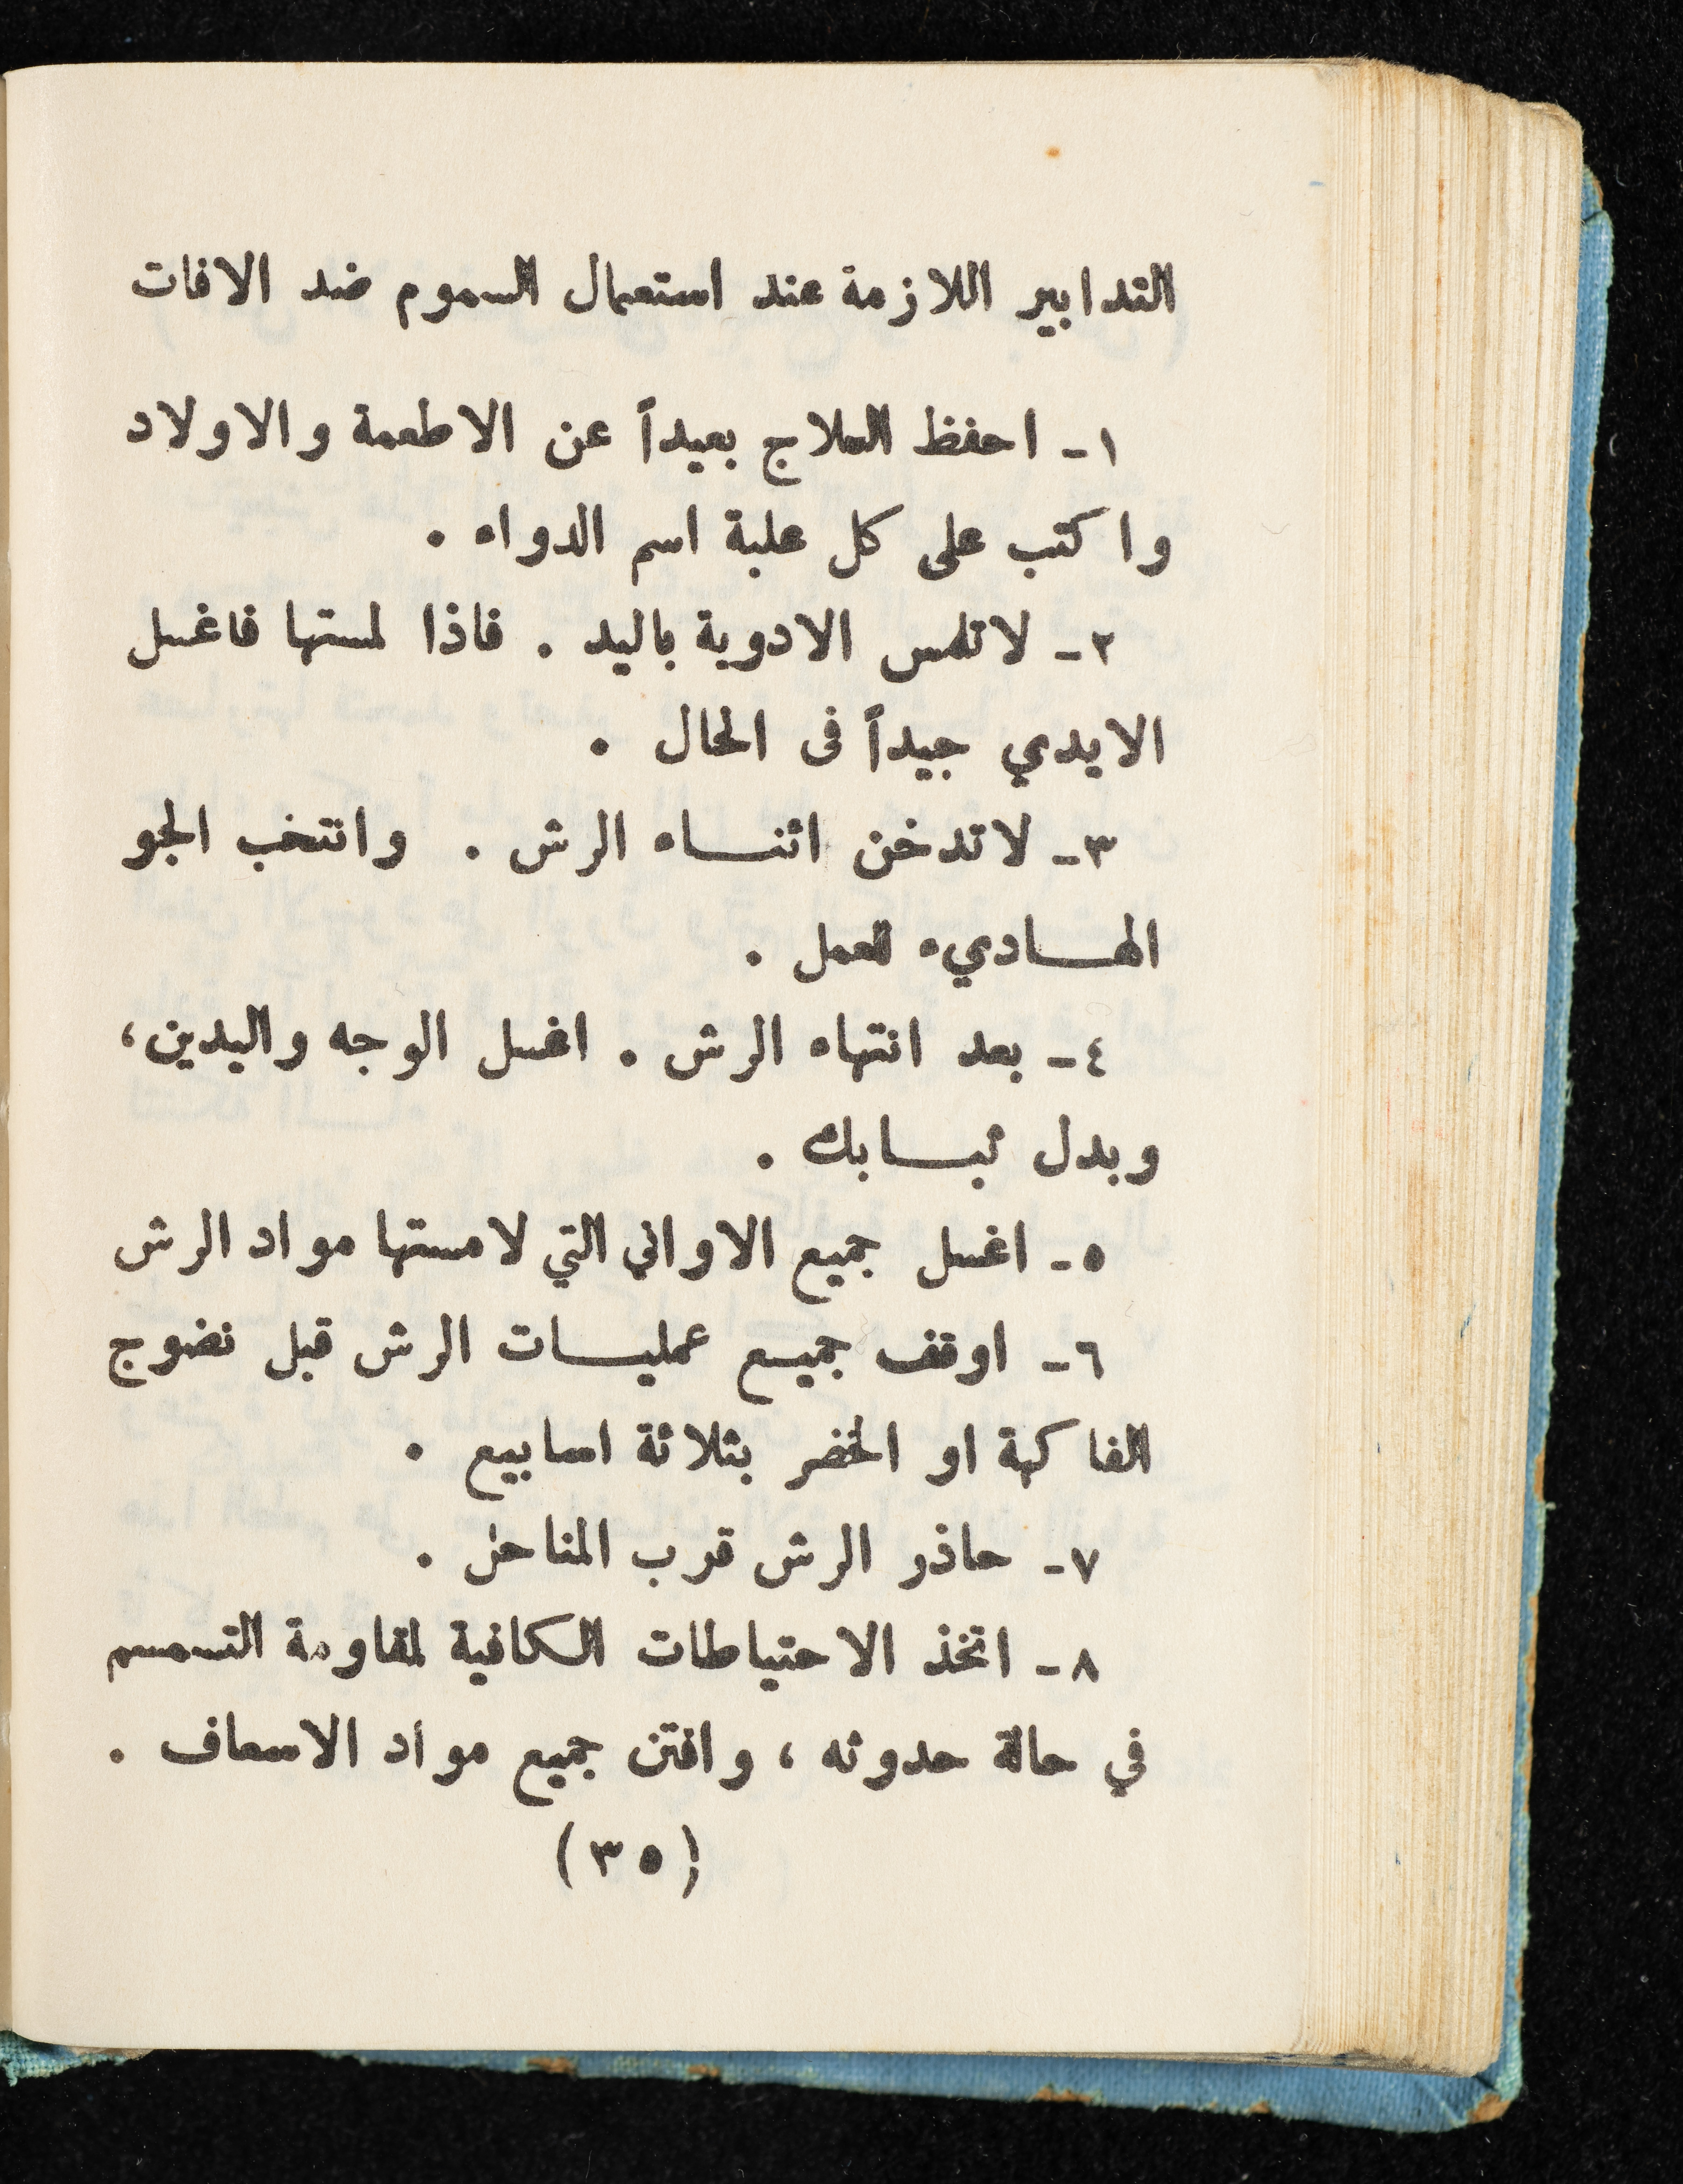 التدابير اللازمة عند استعمال السموم ضد الافات
١- احفظ العلاج بعيداً عن الاطعمة والاولاد
واكتب على كل علبة اسم الدواء .
٢- لاتلمس الادوية باليد . فاذا لمستها فاغسل
الايدي جيداً فى الحال .
٣- لاتدخن اثنـــاء الرش . وانتخب الجو
الهـــاديء للعمل .
٤- بعد انتهاء الرش . اغسل الوجه واليدين،
وبدل ثيـــابك .
٥- اغسل جميع الاواني التي لامستها مواد الرش
٦- اوقف جميـع عمليـــات الرش قبل نضوج
الفاكهة او الخضر بثلاثة اسابيع .
٧- حاذر الرش قرب المناحل .
٨- اتخذ الاحتياطات الكافية لمقاومة التسمم
في حالة حدوثه ، واقتن جميع مواد الاسعاف .
(٣٥)